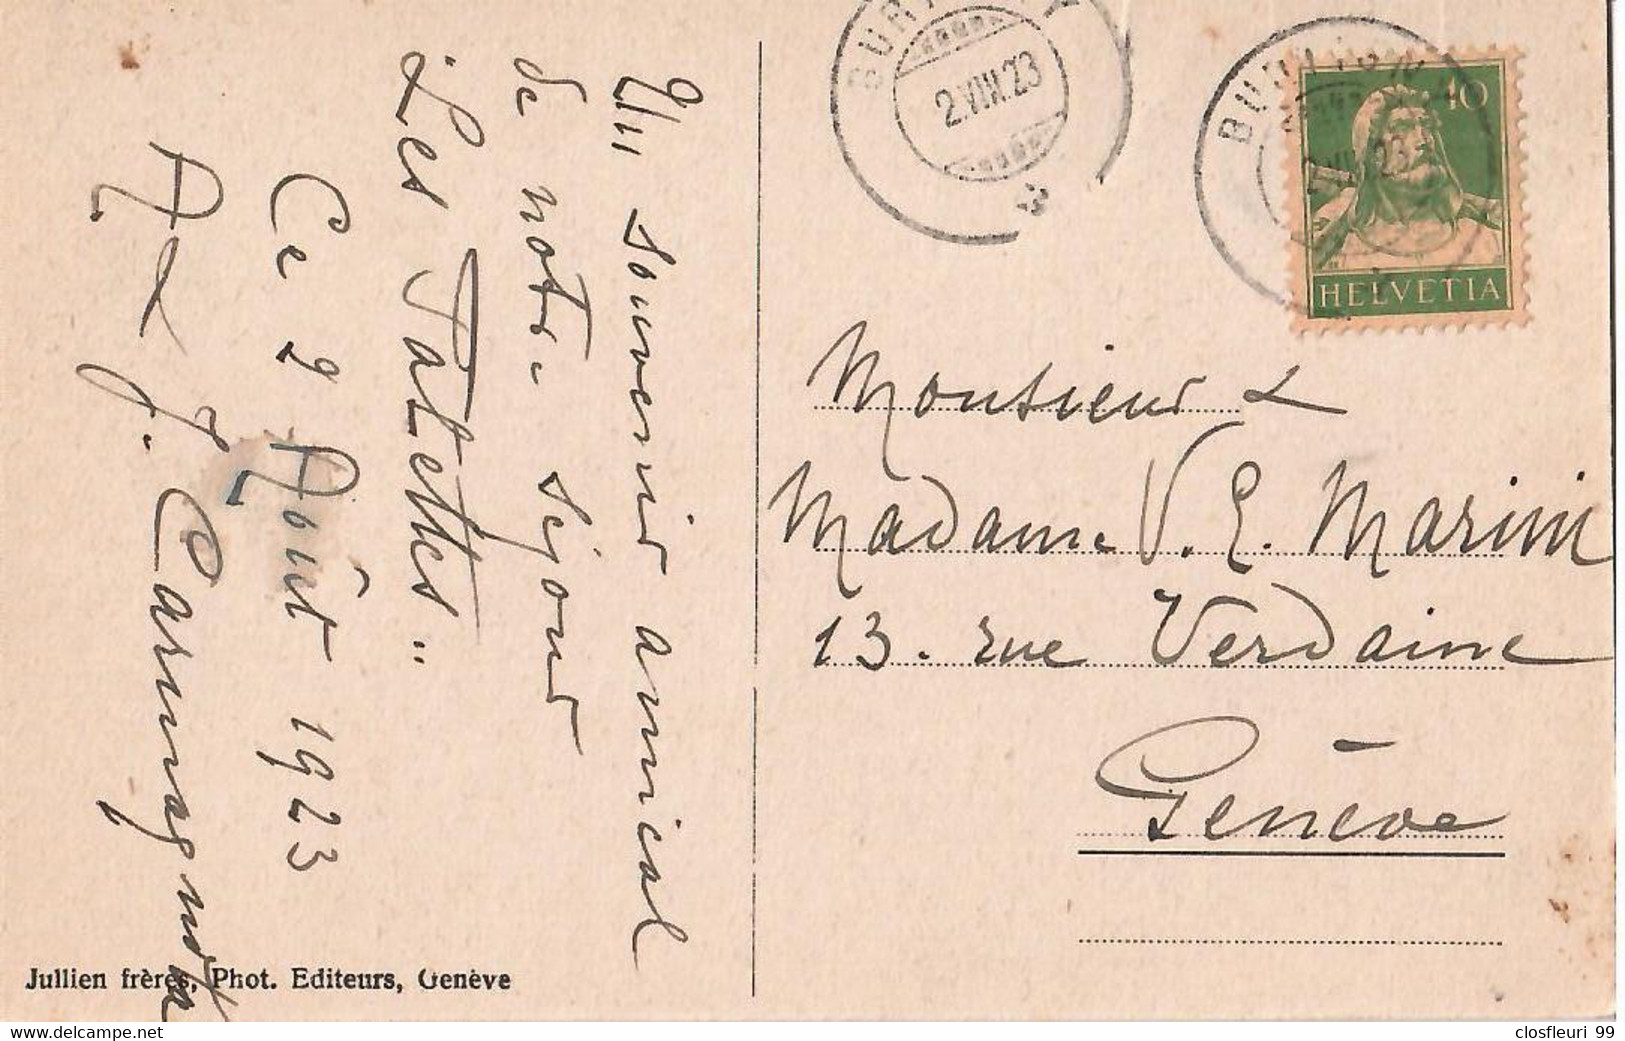 Un souvenir amical
de notre séjour
Les Palettes..
Ce 2 Août 1923
A & J.
Jullien frères, Phot. Editeurs, Genève
2.VIII.23
10
HELVETIA
Monsieur &
Madame V. E. Marini
13. rue Verdaine
Genève
www.delcampe.net
closfleuri 99